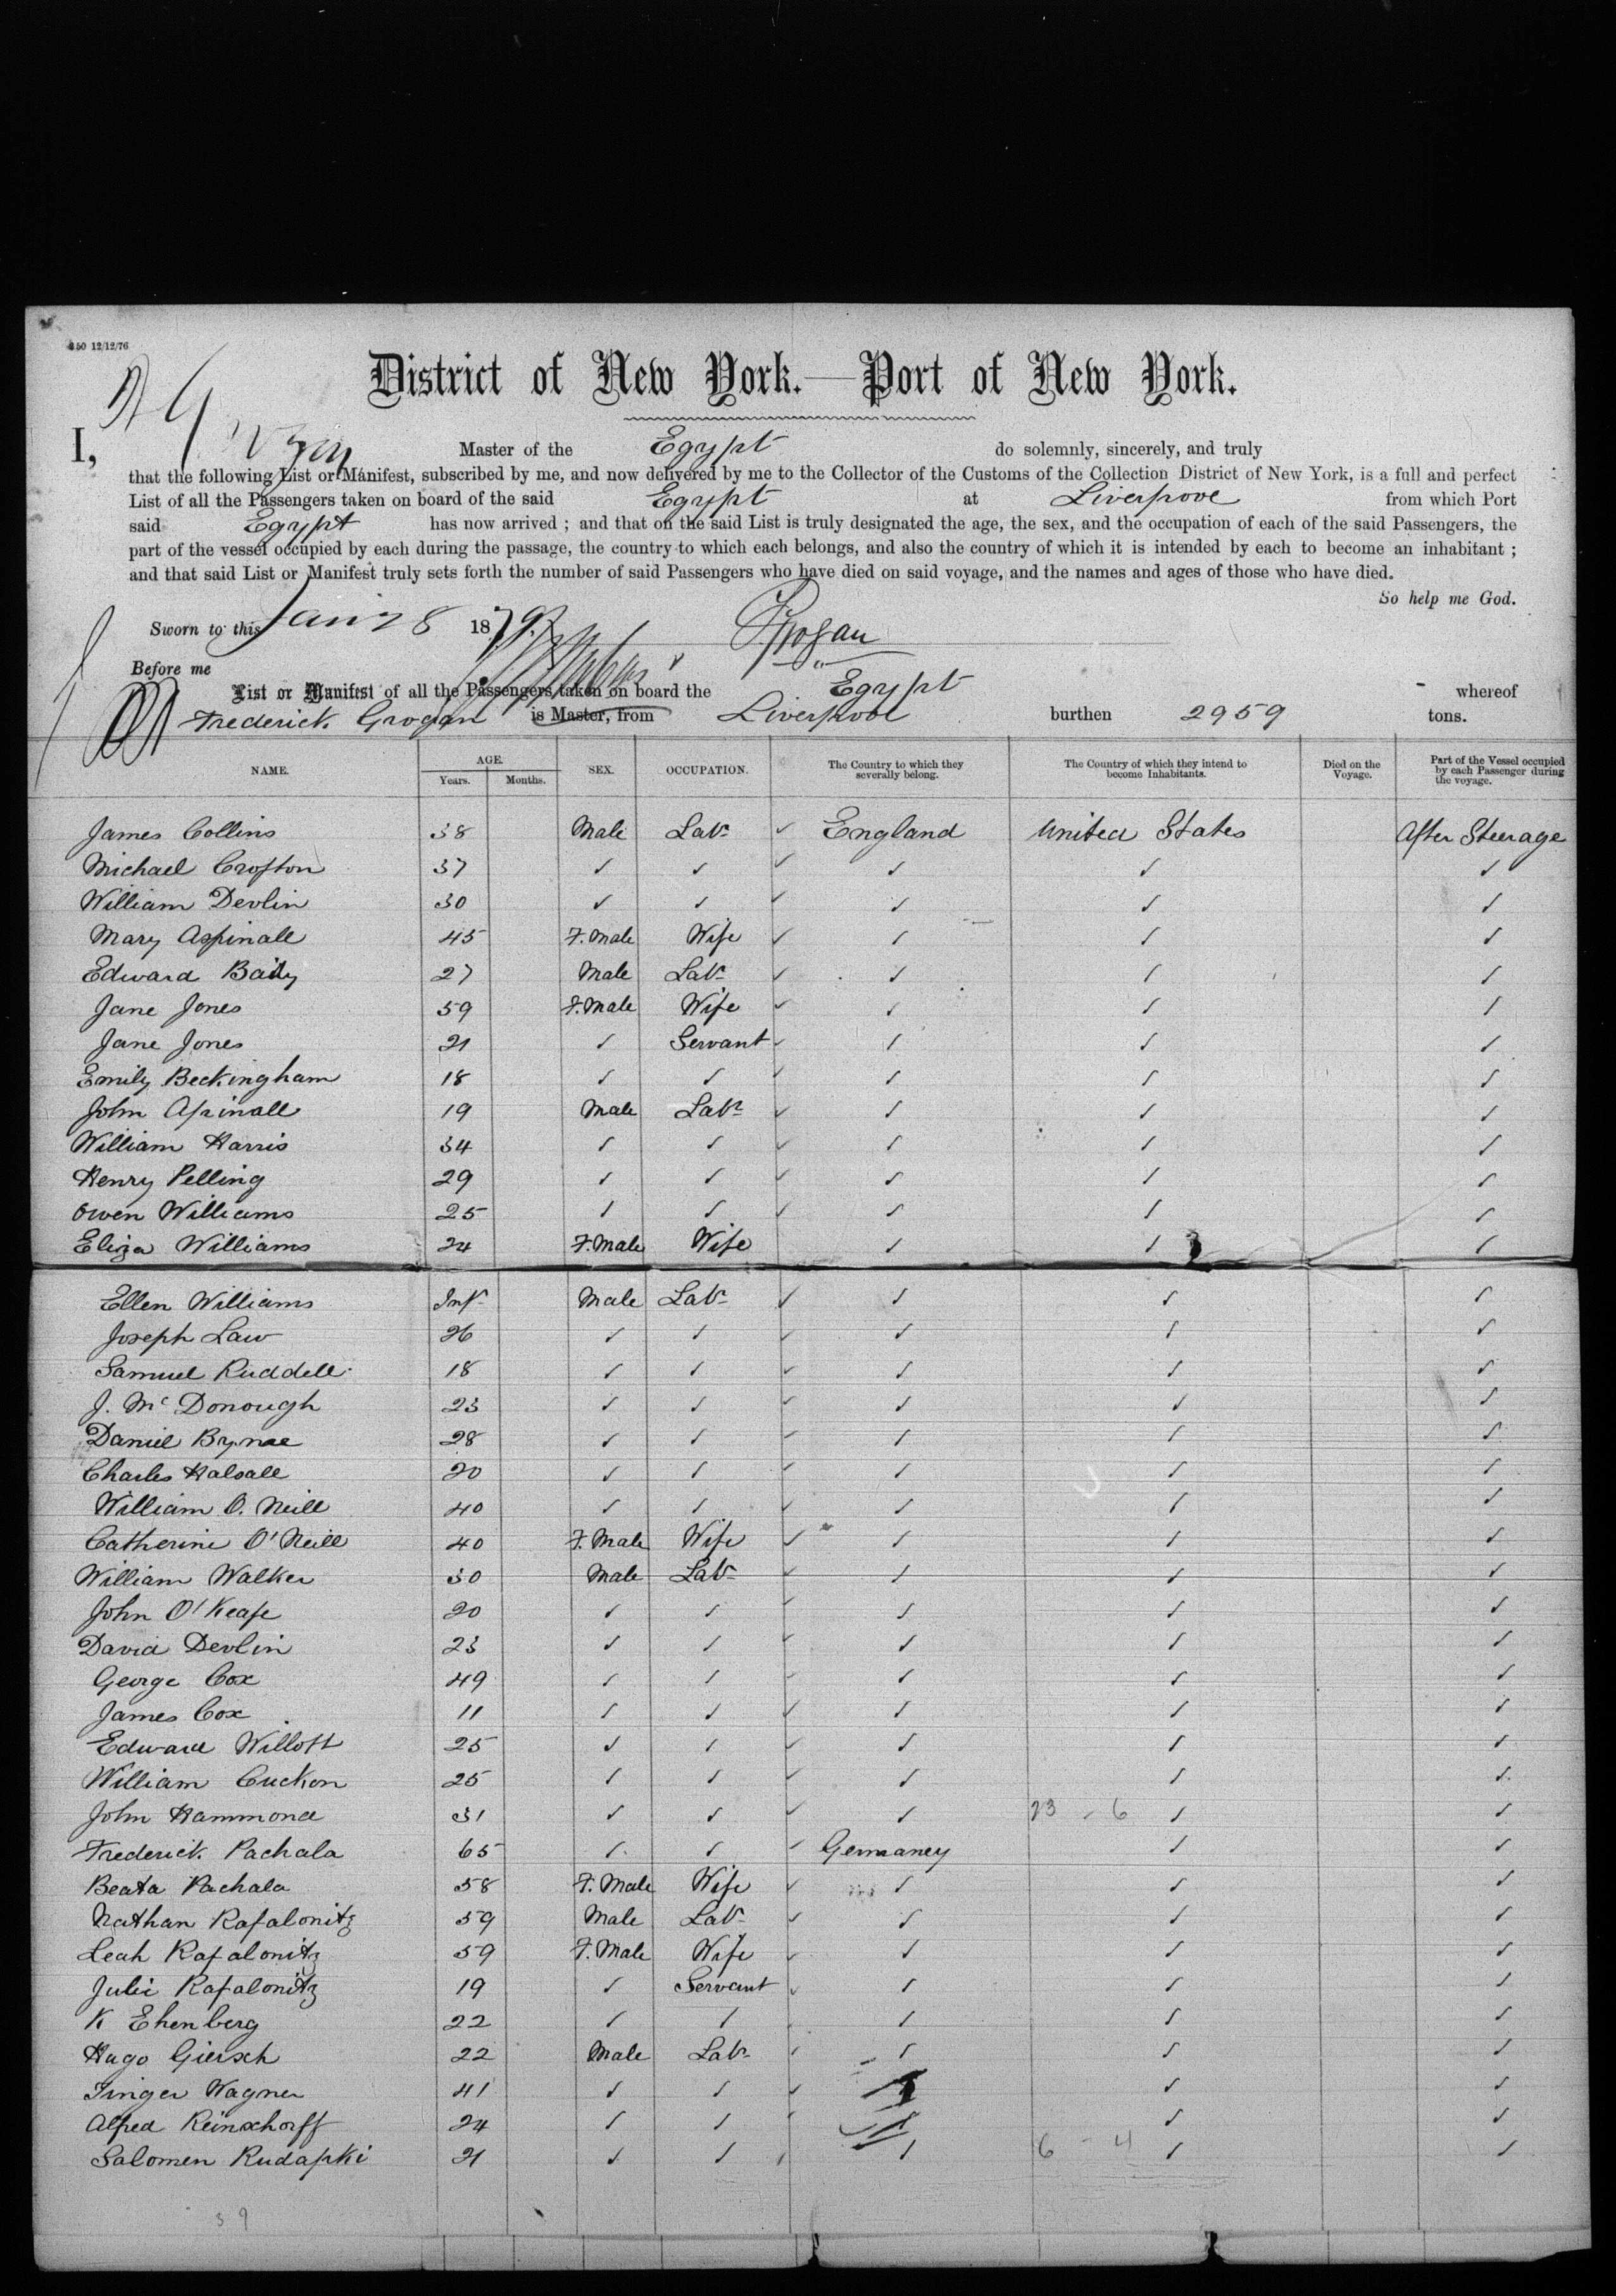 350 12/12/76
District of New York.—Port of New York.
I, Grogan Master of the Egypt do solemnly, sincerely, and truly
that the following List or Manifest, subscribed by me, and now delivered by me to the Collector of the Customs of the Collection District of New York, is a full and perfect
List of all the Passengers taken on board of the said Egypt at Liverpool from which Port
said Egypt has now arrived ; and that on the said List is truly designated the age, the sex, and the occupation of each of the said Passengers, the
part of the vessel occupied by each during the passage, the country to which each belongs, and also the country of which it is intended by each to become an inhabitant ;
and that said List or Manifest truly sets forth the number of said Passengers who have died on said voyage, and the names and ages of those who have died.
So help me God.
Sworn to this Jan 28 1879 Grogan
Before me
List or Manifest of all the Passengers taken on board the Egypt whereof
Frederick Grogan is Master, from Liverpool burthen 2959 tons.
NAME. AGE. Years. Months. SEX. OCCUPATION. The Country to which they severally belong. The Country of which they intend to become Inhabitants. Died on the Voyage. Part of the Vessel occupied by each Passenger during the voyage.
James Collins 38 Male Labr England United States After Steerage
Michael Crofton 37
William Devlin 30
Mary Aspinall 45 F.Male Wife
Edward Baily 27 Male Labr
Jane Jones 59 F.Male Wife
Jane Jones 21 Servant
Emily Beckingham 18
John Apinall 19 Male Labr
William Harris 34
Henry Pelling 29
Owen Williams 25
Eliza Williams 24 F.Male Wife
Ellen Williams Inft Male Labr
Joseph Law 26
Samuel Ruddell 18
J. Mc Donough 23
Daniel Byrnae 28
Charles Halsall 20
William O. Neill 40
Catherine O'Neill 40 F.Male Wife
William Walker 30 Male Labr
John O'Keafe 20
David Devlin 23
George Cox 49
James Cox 11
Edward Willott 25
William Cuckon 25
John Hammond 31 23 - 6
Frederick Pachala 65 Gernaney
Beata Pachala 58 F.Male Wife
Nathan Rafalonitz 59 Male Labr
Leah Rafalonitz 59 F.Male Wife
Julie Rafalonitz 19 Servant
K Ehenberg 22
Hugo Giersch 22 Male Labr
Tinger Wagner 41
Alfred Reinschorff 24
Salomen Rudapki 21 6 - 4
39